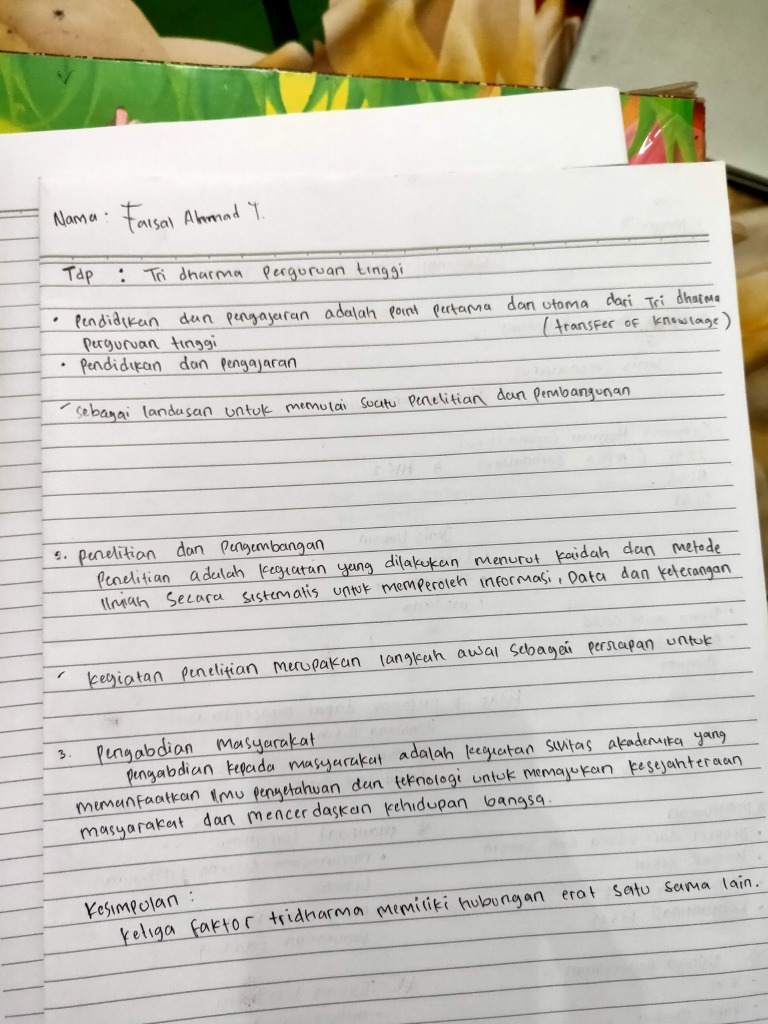 Nama : Faisal Ahmad Y.
Tdp : Tri dharma perguruan tinggi
• Pendidikan dan pengajaran adalah point pertama dan utama dari Tri dharma
perguruan tinggi (transfer of knowlage)
• Pendidikan dan pengajaran
- sebagai landasan untuk memulai suatu penelitian dan pembangunan
2. Penelitian dan Pengembangan
Penelitian adalah kegiatan yang dilakukan menurut kaidah dan metode
Ilmiah Secara sistematis untuk memperoleh informasi, Data dan keterangan
- kegiatan penelitian merupakan langkah awal sebagai persiapan untuk
3. Pengabdian Masyarakat
pengabdian kepada masyarakat adalah kegiatan sivitas akademika yang
memanfaatkan Ilmu pengetahuan dan teknologi untuk memajukan kesejahteraan
masyarakat dan mencerdaskan kehidupan bangsa.
Kesimpulan :
ketiga faktor tridharma memiliki hubungan erat satu sama lain.